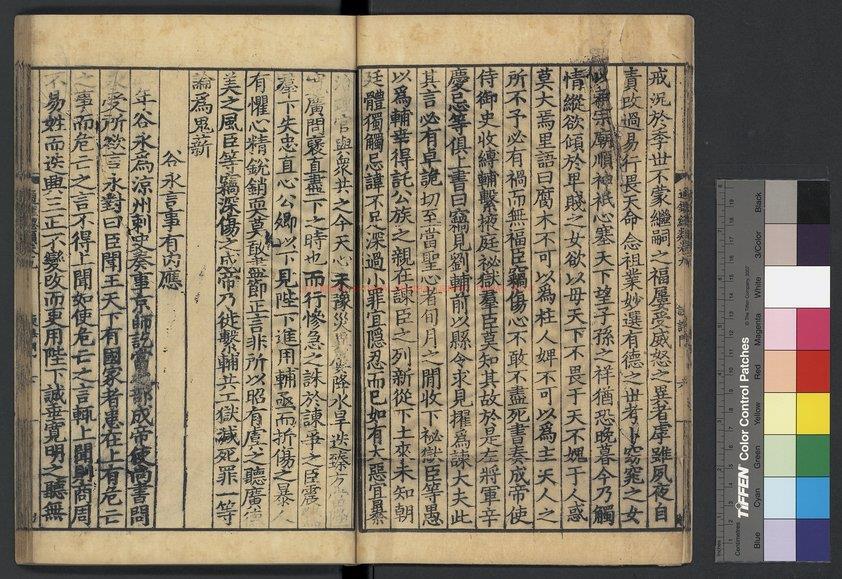 戒況於季世不蒙繼嗣之福屢受威怒之異者虖雖夙夜自
責改過易行畏天命念祖業妙選有德之世考卜窈窕之女
以承宗廟順神祇心塞天下望子孫之祥猶恐晚暮今乃觸
情縱欲傾於卑賤之女欲以母天下不畏于天不媿于人惑
莫大焉里語曰腐木不可以為柱人婢不可以為主天人之
所不予必有禍而無福臣竊傷心不敢不盡死書奏成帝使
侍御史收縛輔繫掖庭祕獄羣臣莫知其故於是左將軍辛
慶忌等俱上書曰竊見劉輔前以縣令求見擢為諫大夫此
其言必有卓詭切至當聖心者旬月之間收下祕獄臣等愚
以為輔幸得託公族之親在諫臣之列新從下土來未知朝
廷體獨觸忌諱不足深過小罪宜隱忍而已如有大惡宜暴
官與衆共之今天心未豫災異屢降水旱迭臻方當
廣問褒直盡下之時也而行慘急之誅於諫爭之臣震
羣下失忠直心公卿以下見陛下進用輔亟而折傷之暴人
有懼心精銳銷耎莫敢盡節正言非所以昭有虞之聽廣
美之風臣等竊深傷之成帝乃徙繫輔共工獄減死罪一等
論為鬼薪
谷永言事有內應
年谷永為涼州刺史奏事京師訖當之部成帝使尚書問
受所欲言永對曰臣聞王天下有國家者患在上有危亡
之事而危亡之言不得上聞如使危亡之言輒上聞則商周
不易姓而迭興三正不變改而更用陛下誠垂寬明之聽無